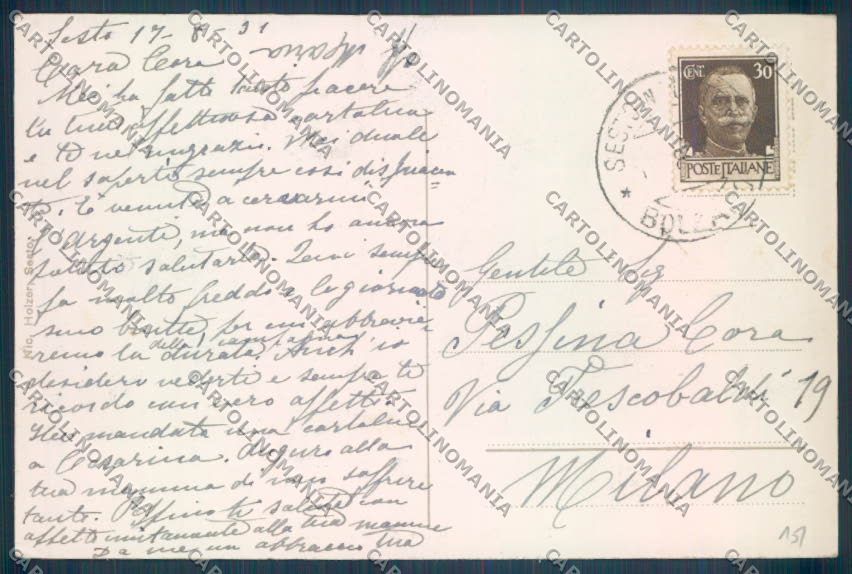 Sesto 17 - 8 - 31
Cara Cora
Mi ha fatto tanto piacere
la tua affettuosa cartolina
e te ne ringrazio. Mi duole
nel saperti sempre così dispiacen-
te. È venuta a cercarmi
l'Argenti, ma non ho ancora
potuto salutarla. Qui sempre
fa molto freddo e le giornate
sono brutte, per cui abbrevie-
remo la durata della campagna. Anch'io
desidero vederti e sempre ti
ricordo con vero affetto.
Ho mandato una cartolina
a Cesarina. Auguro alla
tua mamma di non soffrire
tanto. Ti saluto con
affetto unitamente alla tua mamma
Da me un abbraccio tua
Maria
Nic. Holzer, Sesto
CENT. 30
POSTE ITALIANE
SESTO
BOLZANO
Gentile Sig
Pessina Cora
Via Frescobaldi 19
Milano
151
CARTOLINOMANIA